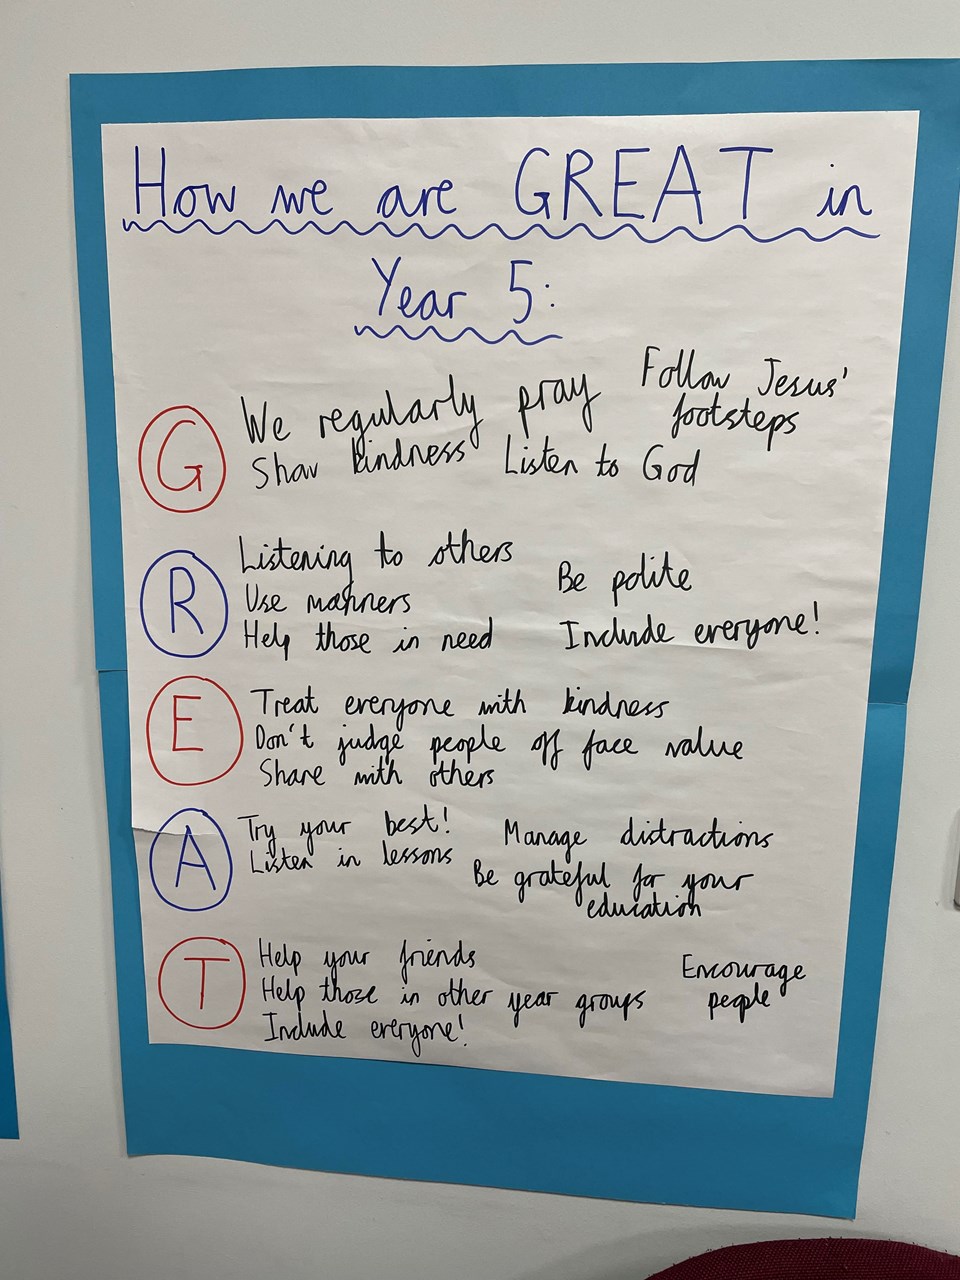 How we are GREAT in
Year 5:
G
We regularly pray
Show kindness
Listen to God
Follow Jesus'
footsteps
R
Listening to others
Use manners
Help those in need
Be polite
Include everyone!
E
Treat everyone with kindness
Don't judge people off face value
Share with others
A
Try your best!
Listen in lessons
Manage distractions
Be grateful for your
education
T
Help your friends
Help those in other year groups
Include everyone!
Encourage
people